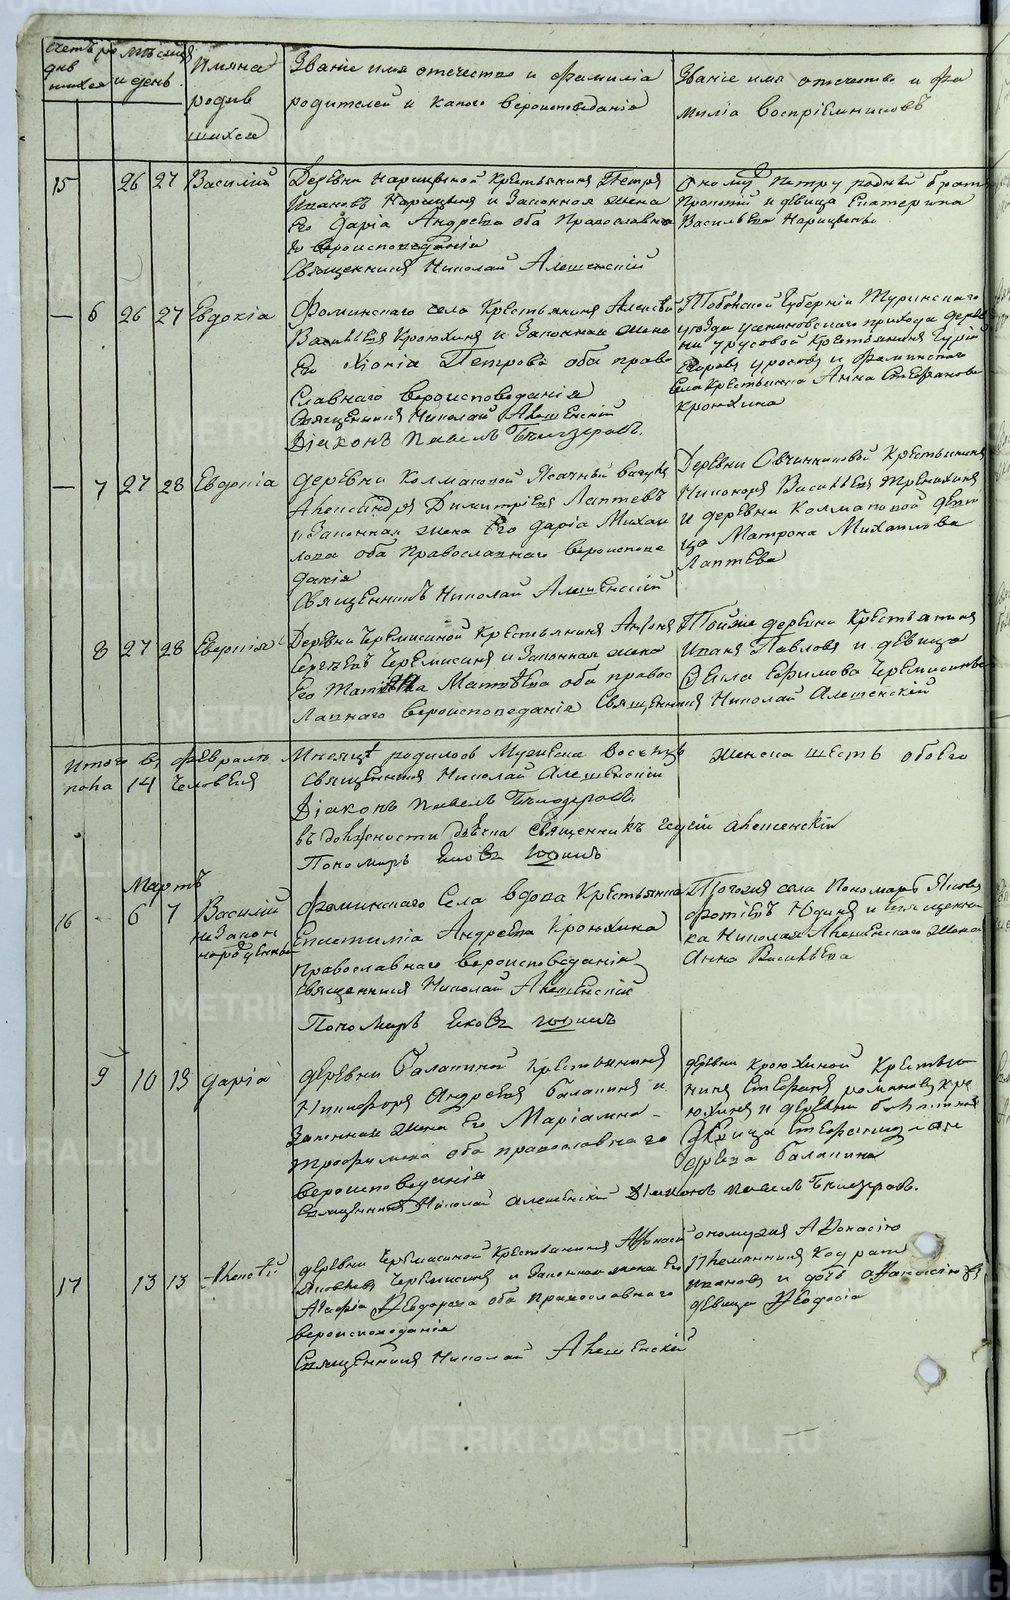 Счетъ ро
див
шихся
Мѣсяцъ
и день
Имяна
родив
шихся
Званіе имя отечество и фамилія
родителей и какого вероисповеданія
Званіе имя отечество и фа
милія Воспріемниковъ
15 26 27 Василий
Деревни Нарицыной Крестьянинъ Петръ
Ивановъ Нарицынъ и Законная жена
Его Дарія Андреева оба Православна
го вероисповеданія
Священникъ Николай Алешенскій
Оному Петру родный братъ
и девица Екатерина
Васильева Нарицына
— 6 26 27 Евдокіа
Фоминскаго села Крестьянинъ Алексѣй
Васильевъ Крюхинъ и Законная жена
Его Хіонія Петрова оба право
Славнаго вероисповеданія
Священникъ Николай Алешенскій
Діаконъ Павелъ
Тобольской Губерніи Туринскаго
уѣзда прихода дерев
ни Урусовой Крестьянинъ Гурій
Егоровъ и Фоминскаго
Села Крестьянка Анна Стефанова
Крюхина
— 7 27 28 Евдокіа
деревни Колмаковой Ясачный
Александръ Димитріевъ Лаптевъ
и Законная жена Его Даріа Михаи
лова оба Православнаго вероиспове
данія
Священникъ Николай Алешенскій
Деревни Овчинниковой Крестьянинъ
Никоноръ Васильевъ
и деревни Колмаковой деви
ца Матрона Михаилова
Лаптева
8 27 28 Евдокія
Деревни Черемисиной Крестьянинъ
Сергеевъ Черемисинъ и Законная жена
Его Матвѣева оба правос
лавнаго вероисповеданія Священникъ Николай Алешенскій
Тойже деревни Крестьянинъ
Иванъ Павловъ и девица
Ефимова Черемисинова
Итого въ Февралѣ Месяцѣ родилось Мужеска Восемь женска шесть обоего
пола 14 Человекъ
Священникъ Николай Алешенскій
Діаконъ Павелъ
въ должности дьячка Священникъ Алешенскій
Пономарь Яковъ Юдинъ
Мартъ
16 6 7 Василій
незакон
норожденный
Фоминскаго Села вдова Крестьянка
Епистиміа Андреева Крюхина
Православнаго вероисповеданія
Священникъ Николай Алешенскій
Пономарь Яковъ Юдинъ
Тогожъ села Пономарь Яковъ
Фотіевъ Юдинъ и Священни
ка Николая Алешенскаго жена
Анна Васильева
9 10 13 Даріа
деревни Балакиной Крестьянинъ
Никифоръ Андреевъ Балакинъ и
Законная жена Его Маріамна
Трофимова оба православнаго
вероисповеданія
Священникъ Николай Алешенскій Діаконъ Павелъ
деревни Крюхиной Крестья
нинъ Стефанъ Романовъ Крю
хинъ и деревни Балакиной
девица Стефанида Ан
дреева Балакина
17 13 13 Алексѣй
деревни Черемисиной Крестьянинъ Афонасій
Яковлевъ Черемисинъ и Законная жена Его
Агафіа Ѳедорова оба Православнаго
вероисповеданія
Священникъ Николай Алешенскій
Ономужъ Афонасію
племянникъ Кодратъ
Ивановъ и дочь Афанасіева
девица Ѳеодосіа